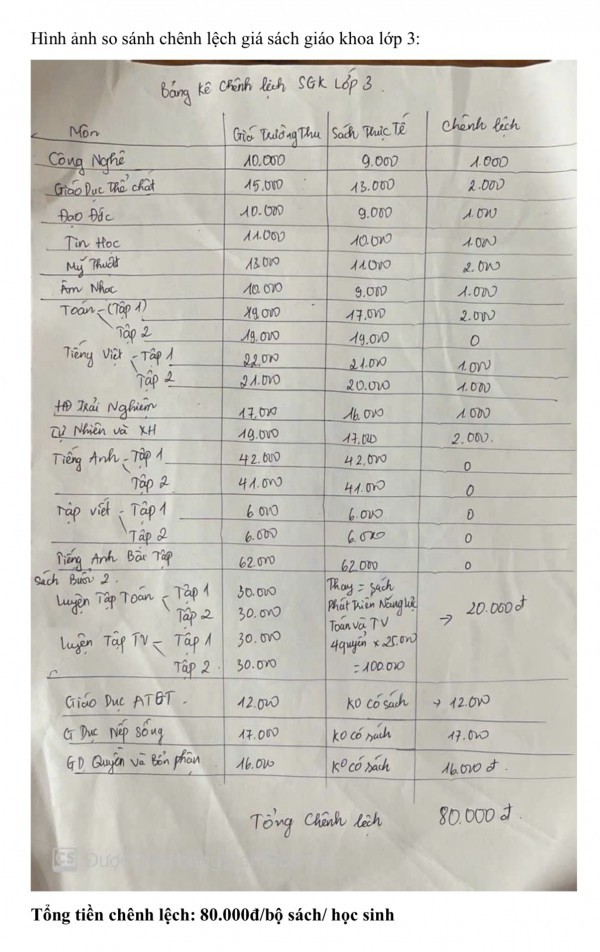 Hình ảnh so sánh chênh lệch giá sách giáo khoa lớp 3:
Bảng kê chênh lệch SGK Lớp 3.
Môn Giá Trường Thu Sách Thực Tế Chênh lệch
Công Nghệ 10.000 9.000 1.000
Giáo Dục Thể chất 15.000 13.000 2.000
Đạo Đức 10.000 9.000 1.000
Tin Học 11.000 10.000 1.000
Mỹ Thuật 13.000 11.000 2.000
Âm Nhạc 10.000 9.000 1.000
Toán - (Tập 1) 19.000 17.000 2.000
Tập 2 19.000 19.000 0
Tiếng Việt - Tập 1 22.000 21.000 1.000
Tập 2 21.000 20.000 1.000
HĐ Trải Nghiệm 17.000 16.000 1.000
Tự Nhiên và XH 19.000 17.000 2.000.
Tiếng Anh - Tập 1 42.000 42.000 0
Tập 2 41.000 41.000 0
Tập viết - Tập 1 6.000 6.000 0
Tập 2 6.000 6.000 0
Tiếng Anh Bài Tập 62.000 62.000 0
Sách Buổi 2.
Luyện Tập Toán - Tập 1 30.000 Thay = sách
Tập 2 30.000 Phát Triển Năng lực → 20.000 đ
Toán và TV
Luyện Tập TV - Tập 1 30.000 4 quyển x 25.000
Tập 2. 30.000 = 100.000
Giáo Dục ATGT. 12.000 KO có sách → 12.000
G Dục Nếp Sống 17.000 KO có sách 17.000
GD Quyền và Bổn phận 16.000 Ko có sách 16.000 đ.
Tổng Chênh lệch 80.000 đ.
CS Được
Tổng tiền chênh lệch: 80.000đ/bộ sách/ học sinh